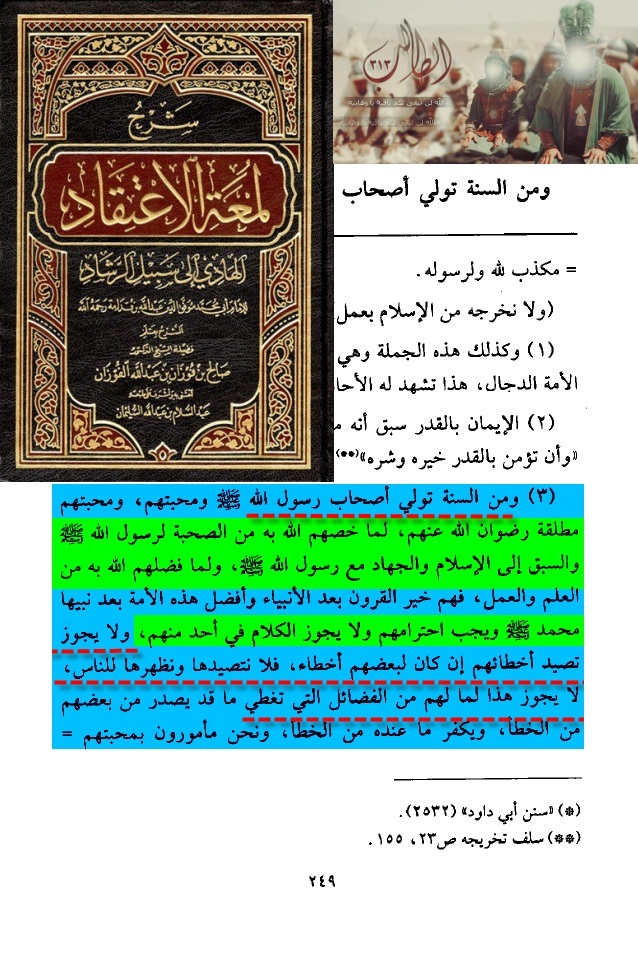 شرح
لمعة الاعتقاد
الهادي إلى سبيل الرشاد
للإمام أبي محمد موفق الدين عبد الله بن قدامة رحمه الله
الشرح بقلم
فضيلة الشيخ الدكتور
صالح بن فوزان بن عبد الله الفوزان
عبد السلام بن عبد الله السليمان
الطالب
٣١٣
ومن السنة تولي أصحاب
= مكذب لله ولرسوله.
(ولا نخرجه من الإسلام بعمل
(١) وكذلك هذه الجملة وهي
الأمة الدجال، هذا تشهد له الأحا
(٢) الإيمان بالقدر سبق أنه م
«وأن تؤمن بالقدر خيره وشره»(**)
(٣) ومن السنة تولي أصحاب رسول الله ﷺ ومحبتهم، ومحبتهم
مطلقة رضوان الله عنهم، لما خصهم الله به من الصحبة لرسول الله ﷺ
والسبق إلى الإسلام والجهاد مع رسول الله ﷺ، ولما فضلهم الله به من
العلم والعمل، فهم خير القرون بعد الأنبياء وأفضل هذه الأمة بعد نبيها
محمد ﷺ ويجب احترامهم ولا يجوز الكلام في أحد منهم، ولا يجوز
تصيد أخطائهم إن كان لبعضهم أخطاء، فلا نتصيدها ونظهرها للناس،
لا يجوز هذا لما لهم من الفضائل التي تغطي ما قد يصدر من بعضهم
من الخطأ، ويكفر ما عنده من الخطأ، ونحن مأمورون بمحبتهم =
(*) «سنن أبي داود» (٢٥٣٢).
(**) سلف تخريجه ص٢٣، ١٥٥.
٢٤٩